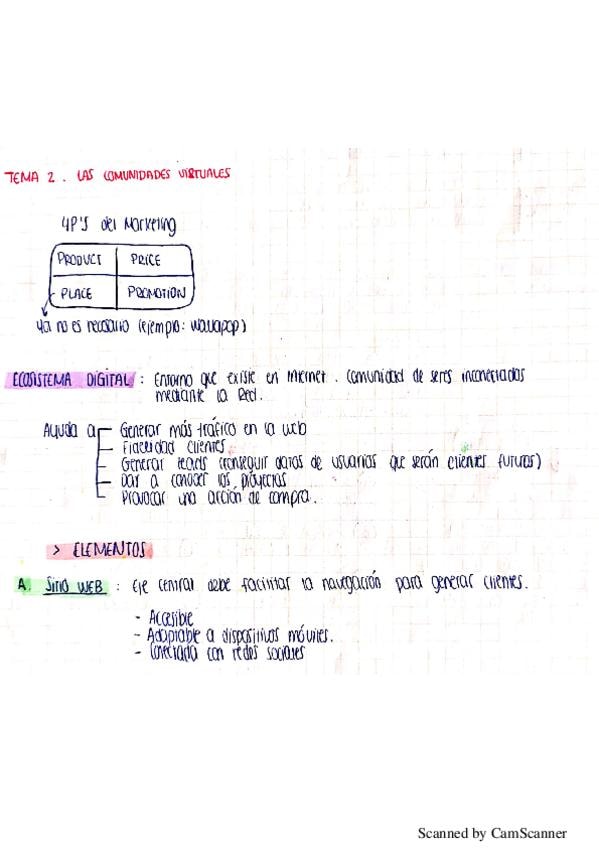 TEMA 2. LAS COMUNIDADES VIRTUALES
4P'S del Marketing
PRODUCT PRICE
PLACE PROMOTION
ya no es necesario (ejemplo: wallapop)
ECOSISTEMA DIGITAL: Entorno que existe en Internet. Comunidad de seres inconectados
mediante la Red.
Ayuda a Generar más tráfico en la web
Fidelidad clientes.
Generar leads (conseguir datos de usuarios que serán clientes futuros)
Dar a conocer los proyectos
Provocar una acción de compra.
> ELEMENTOS
A. Sitio WEB: Eje central debe facilitar la navegación para generar clientes.
- Accesible
- Adaptable a dispositivos móviles.
- Conectada con redes sociales
Scanned by CamScanner